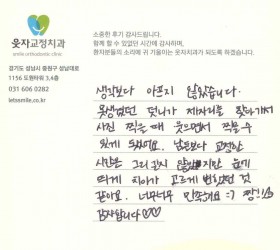 웃자교정치과
smile orthodontic clinic
경기도 성남시 중원구 성남대로
1156 도원타워 3,4층
031 606 0282
letssmile.co.kr
소중한 후기 감사드립니다.
함께 할 수 있었던 시간에 감사하며,
환자분들의 소리에 귀 기울이는 웃자치과가 되도록 하겠습니다.
생각보다 아프지 않았습니다.
못생겼던 덧니가 제자리를 찾아가서
사진 찍을 때 웃으면서 찍을 수
있게 됐어요. 남들보다 교정한
시간은 그리 길지 않았지만 눈에
띄게 치아가 고르게 변화했던 것
같아요. 너무너무 만족해요 :) 짱!!
감사합니다 ♡♡